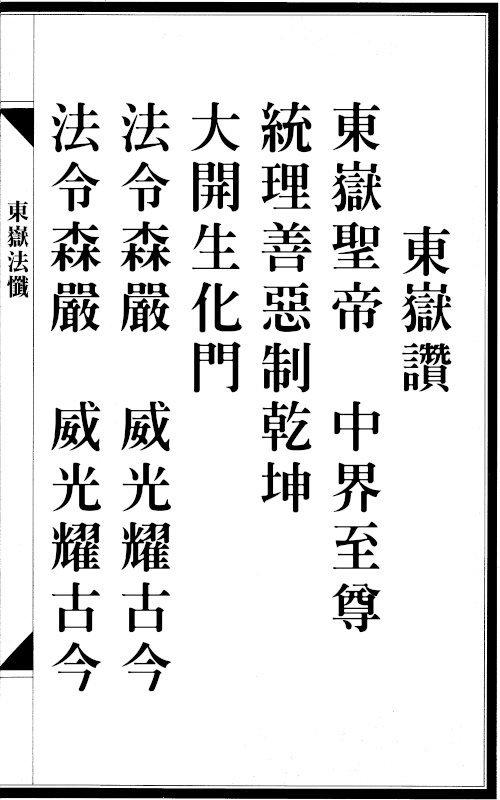 東嶽讚
東嶽聖帝　中界至尊
統理善惡制乾坤
大開生化門
法令森嚴　威光耀古今
法令森嚴　威光耀古今
東嶽法懺